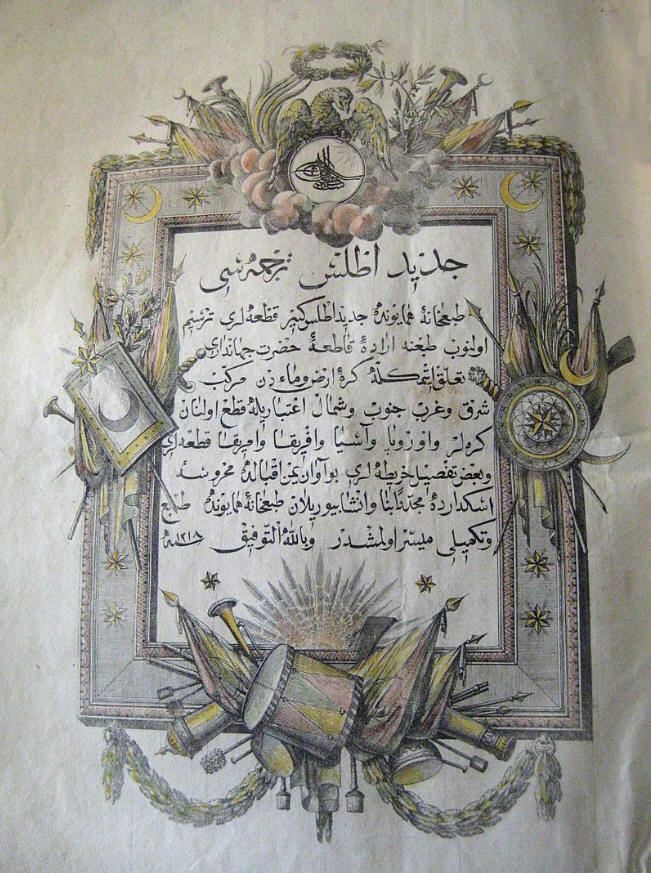 جديد اطلس ترجمه‌سی
طبعخانهٔ همایونده جدید اطلس كبیر قطعه‌لری ترسیم
اولنوب طبعنه ارادهٔ قاطعهٔ حضرت جهانداری
تعلق ایتمكله كرهٔ ارض وماء دن مركب
شرق وغرب جنوب وشمال اعتباریله قطع اولنان
كره‌لر واوروپا وآسیا وافریقا وامریقا قطعه‌لری
وبعض تفصیل خریطه‌لری بو آوان یمن اقبالده محروسهٔ
اسكدارده مجددًا بنا وانشا بیوریلان طبعخانهٔ همایونده طبع
وتكمیلی میسر اولمشدر وبالله التوفیق سنه ١٢١٨